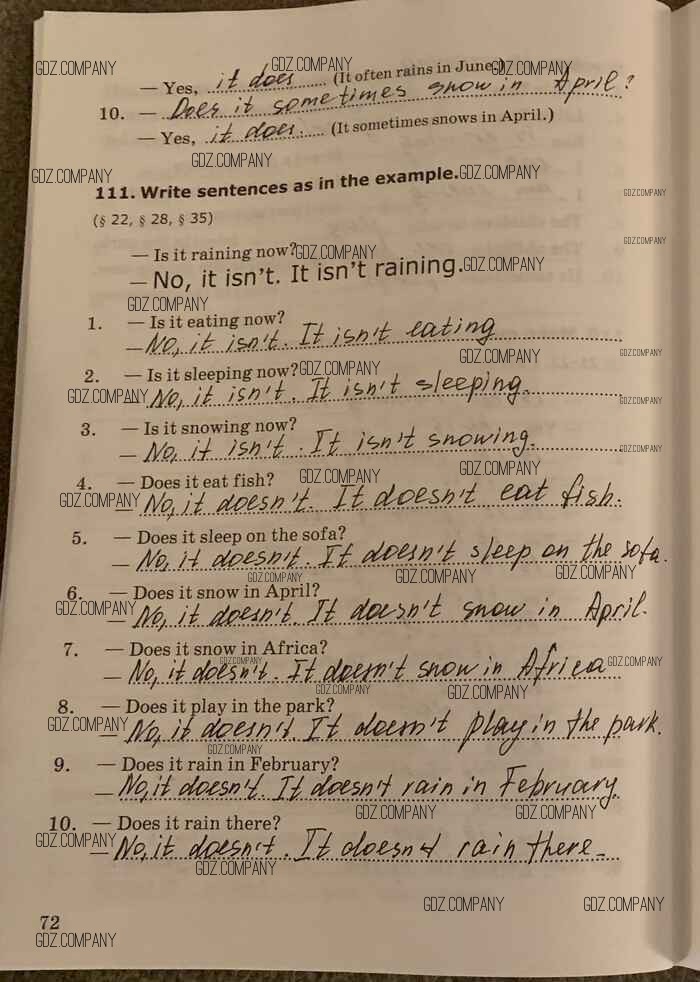 GDZ.COMPANY GDZ.COMPANY GDZ.COMPANY
— Yes, it does (It often rains in June.)
10. — Does it sometimes snow in April?
— Yes, it does. (It sometimes snows in April.)
GDZ.COMPANY
GDZ.COMPANY GDZ.COMPANY
111. Write sentences as in the example.
GDZ.COMPANY
(§ 22, § 28, § 35)
GDZ.COMPANY
— Is it raining now? GDZ.COMPANY
— No, it isn't. It isn't raining. GDZ.COMPANY
GDZ.COMPANY
1. — Is it eating now?
— No, it isn't. It isn't eating
GDZ.COMPANY GDZ.COMPANY
2. — Is it sleeping now? GDZ.COMPANY
GDZ.COMPANY — No, it isn't. It isn't sleeping.
GDZ.COMPANY
3. — Is it snowing now?
— No, it isn't. It isn't snowing.
GDZ.COMPANY
GDZ.COMPANY
4. — Does it eat fish? GDZ.COMPANY
GDZ.COMPANY — No, it doesn't. It doesn't eat fish.
5. — Does it sleep on the sofa?
— No, it doesn't. It doesn't sleep on the sofa.
GDZ.COMPANY GDZ.COMPANY GDZ.COMPANY
6. — Does it snow in April?
GDZ.COMPANY — No, it doesn't. It doesn't snow in April.
7. — Does it snow in Africa?
GDZ.COMPANY GDZ.COMPANY
— No, it doesn't. It doesn't snow in Africa
GDZ.COMPANY GDZ.COMPANY
8. — Does it play in the park?
GDZ.COMPANY — No, it doesn't. It doesn't play in the park.
GDZ.COMPANY
9. — Does it rain in February?
— No, it doesn't. It doesn't rain in February.
GDZ.COMPANY GDZ.COMPANY
10. — Does it rain there?
GDZ.COMPANY — No, it doesn't. It doesn't rain there.
GDZ.COMPANY
GDZ.COMPANY GDZ.COMPANY
72
GDZ.COMPANY